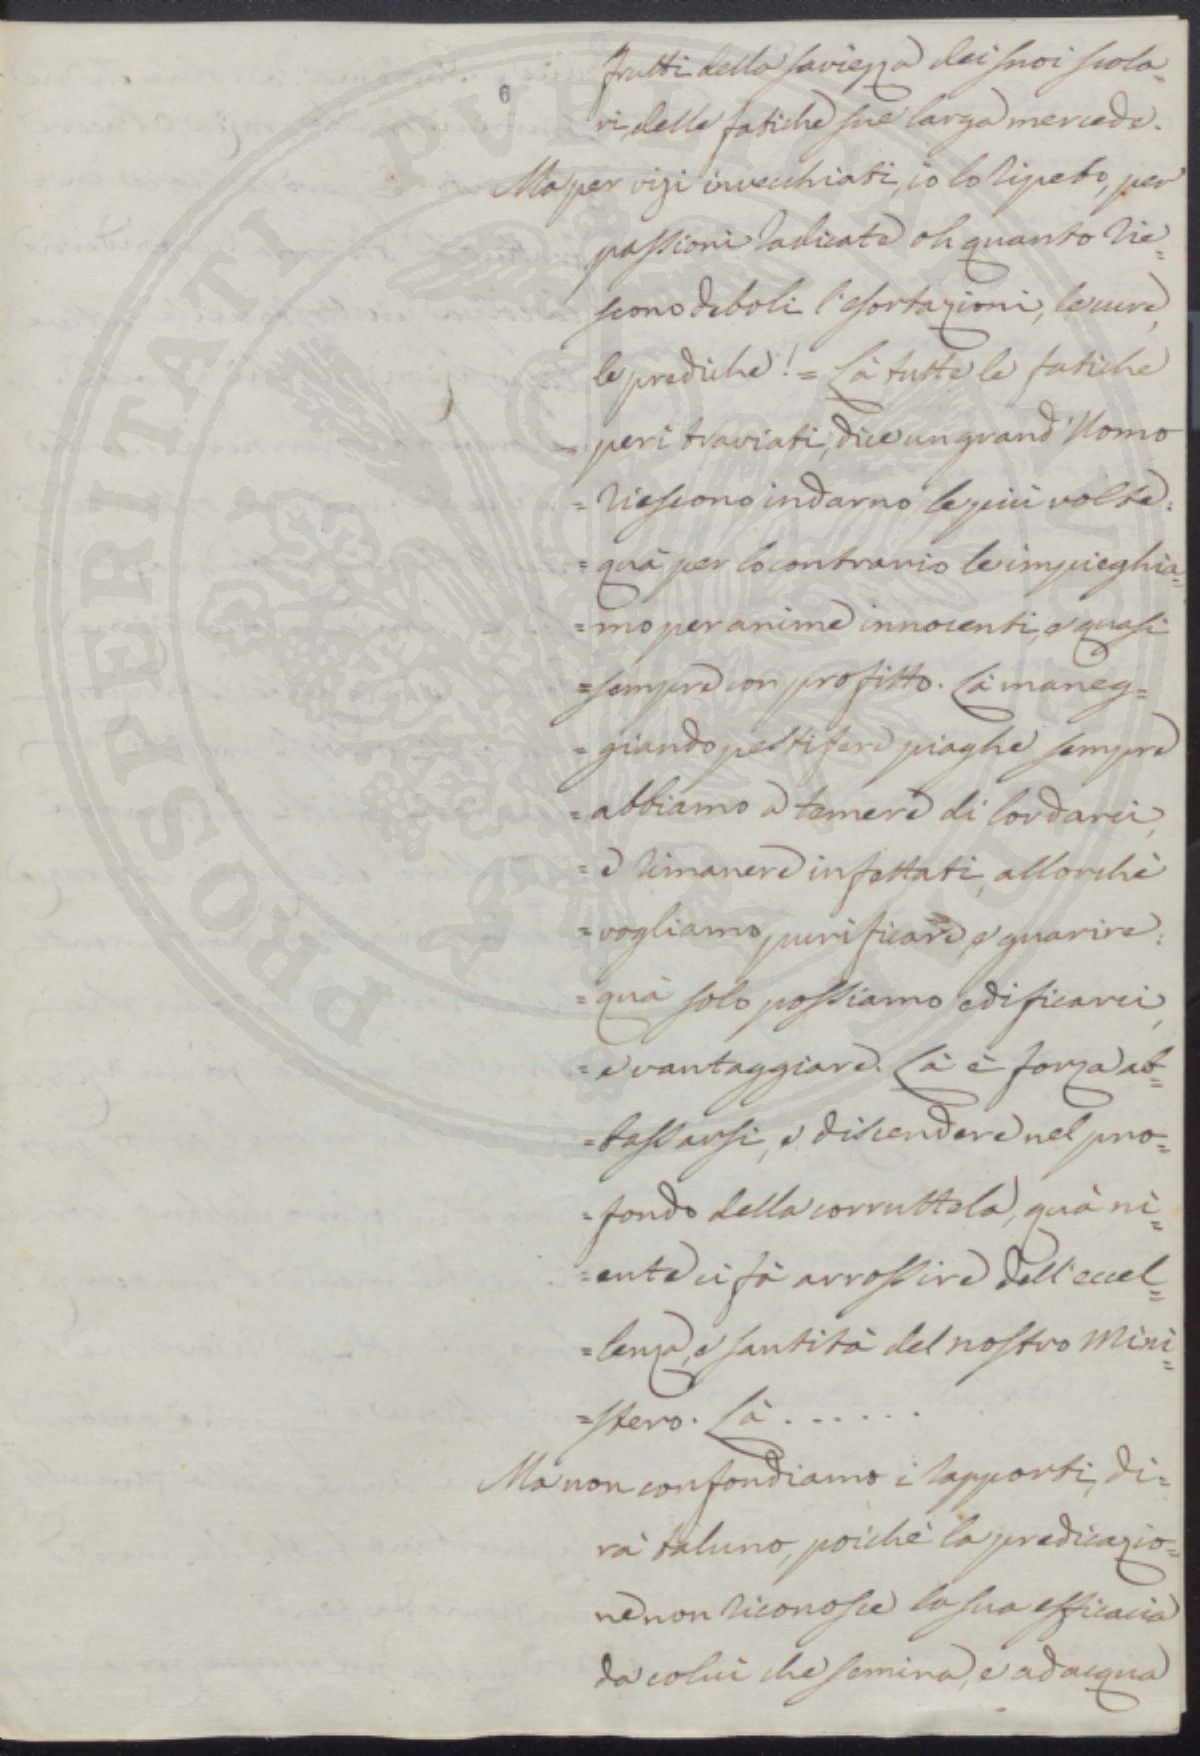 6
frutti della saviezza dei suoi scola=
ri, delle fatiche sue larga mercede.
Ma per vizi invecchiati, io lo ripeto, per
passioni radicate oh quanto rie=
scono deboli l'esortazioni, le cure,
le prediche! = Là tutte le fatiche
= per i traviati, dice un grand'Uomo
= riescono indarno le più volte:
= quà per lo contrario le impieghia=
= mo per anime innocenti, e quasi
= sempre con profitto. Là maneg=
= giando pestifere piaghe sempre
= abbiamo a temere di lordarci,
= e rimanere infettati, allorchè
= vogliamo purificare, e guarire:
= quà solo possiamo edificarci,
= e vantaggiare. Là è forza ab=
= bassarsi, e discendere nel pro=
= fondo della corruttela, quà ni=
= ente ci fà arrossire dell'eccel=
= lenza, e santità del nostro Mini=
= stero. Là . . . . . .
Ma non confondiamo i rapporti, di=
rà taluno, poichè la predicazio=
ne non riconosce la sua efficacia
da colui che semina, e adacqua
PROSPERITATI PVBLICAE